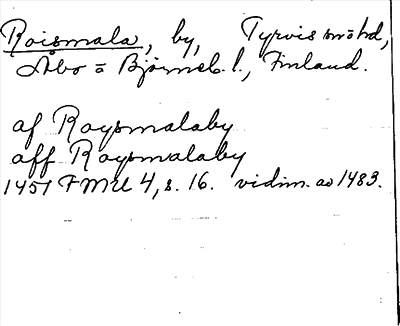 Roismala, by, Tyrvis snöhd,
Åbo o Björneb. l., Finland.
af Roysmalaby
aff Roysmalaby
1451 FMU 4, s. 16. vidim. av 1483.